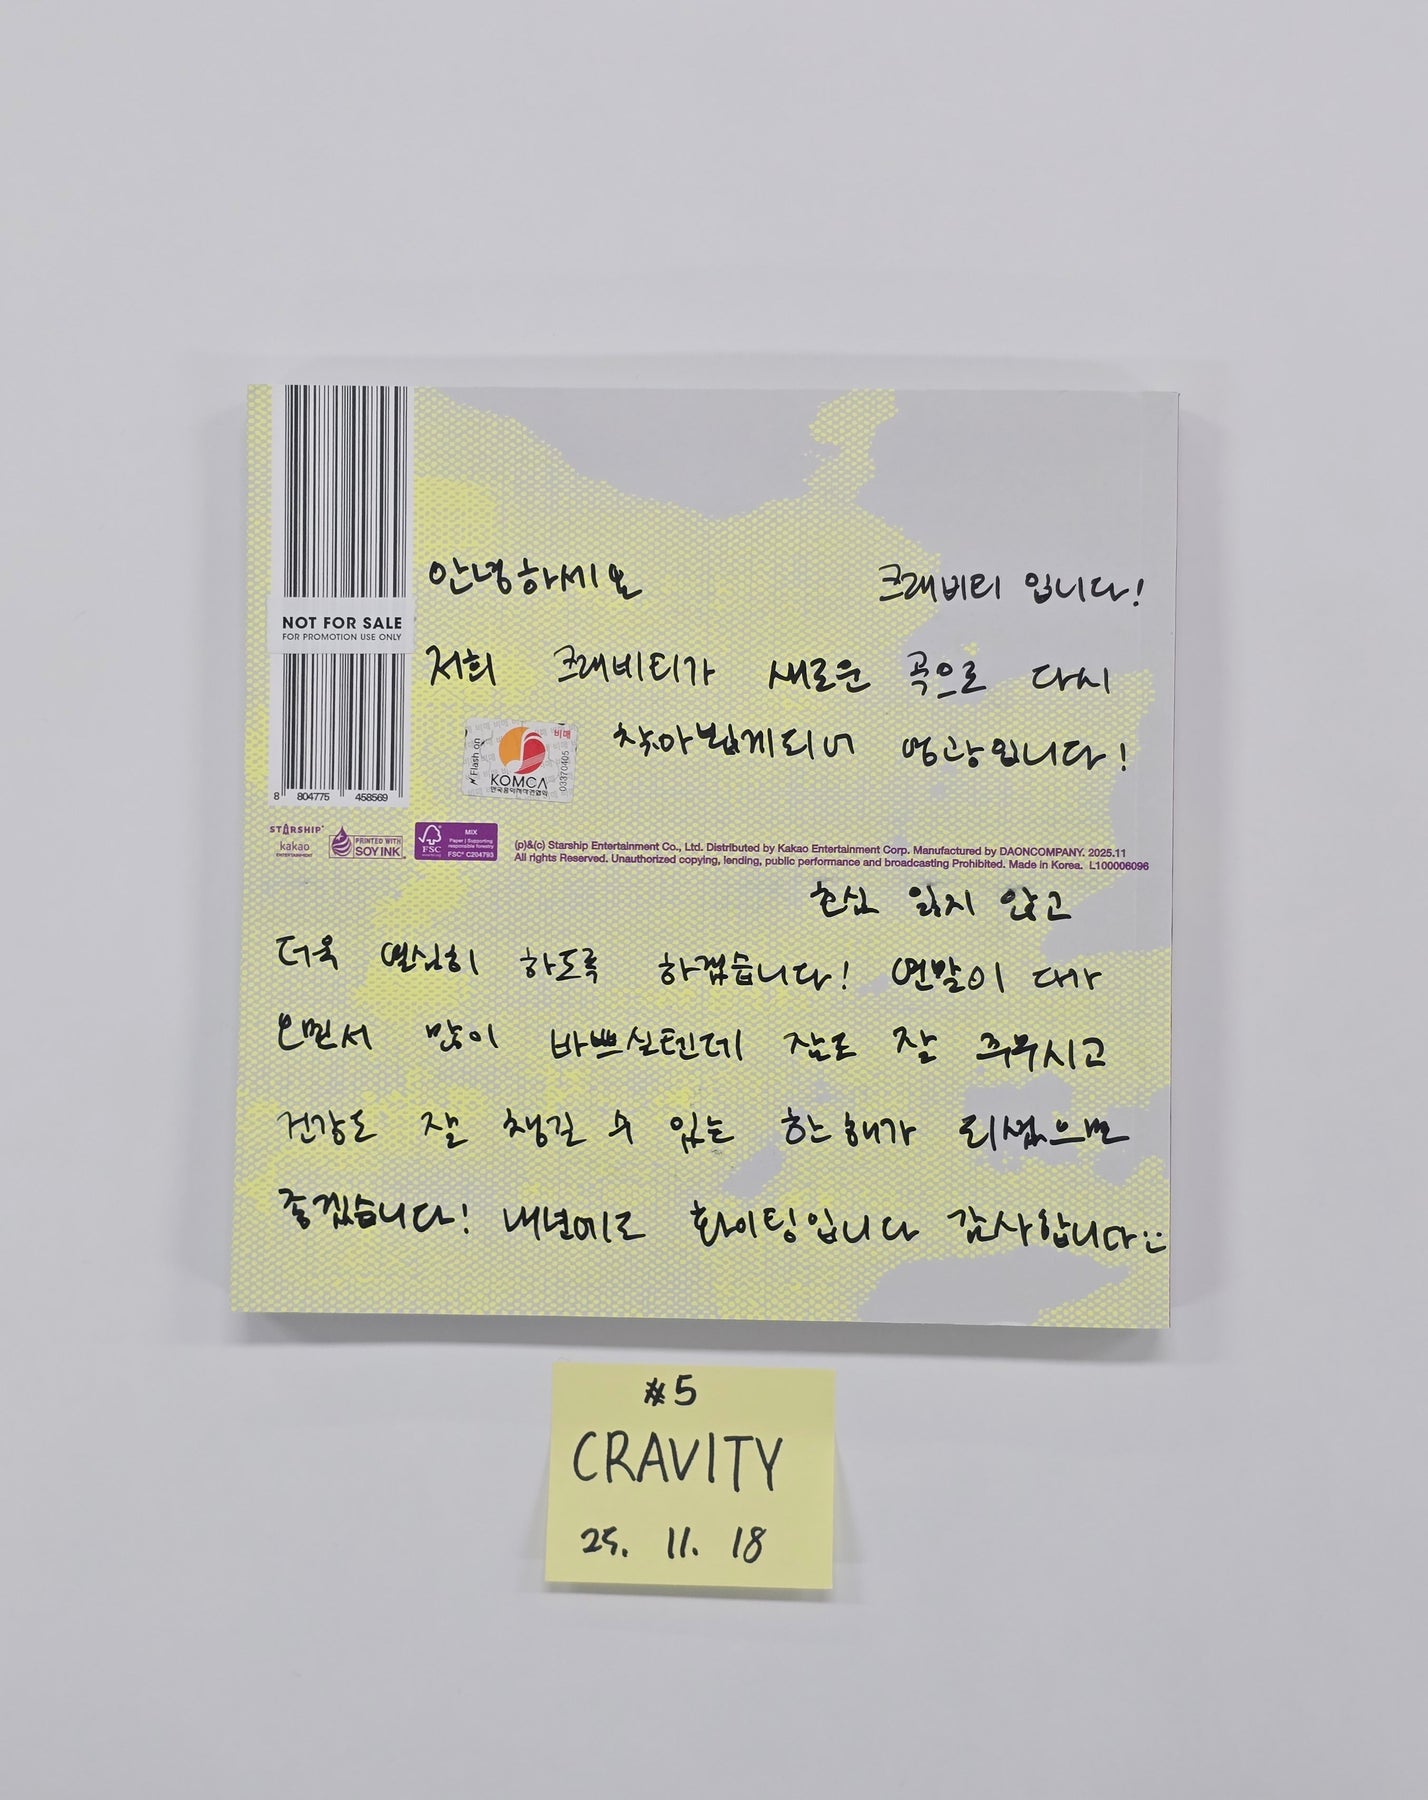 안녕하세요 크래비티 입니다!
저희 크래비티가 새로운 곡으로 다시
찾아뵙게되어 영광입니다!
NOT FOR SALE
FOR PROMOTION USE ONLY
Flash on
비매
KOMCA
한국음악저작권협회
03370405
8 804775 458569
STARSHIP
kakao
ENTERTAINMENT
PRINTED WITH
SOY INK
FSC
MIX
Paper | Supporting
responsible forestry
FSC® C204793
(p)&(c) Starship Entertainment Co., Ltd. Distributed by Kakao Entertainment Corp. Manufactured by DAONCOMPANY. 2025.11
All rights Reserved. Unauthorized copying, lending, public performance and broadcasting Prohibited. Made in Korea. L100006096
초심 잃지 않고
더욱 열심히 하도록 하겠습니다! 연말이 다가
오면서 많이 바쁘실텐데 잠도 잘 주무시고
건강도 잘 챙길 수 있는 한 해가 되셨으면
좋겠습니다! 내년에도 화이팅입니다 감사합니다:)
#5
CRAVITY
25. 11. 18